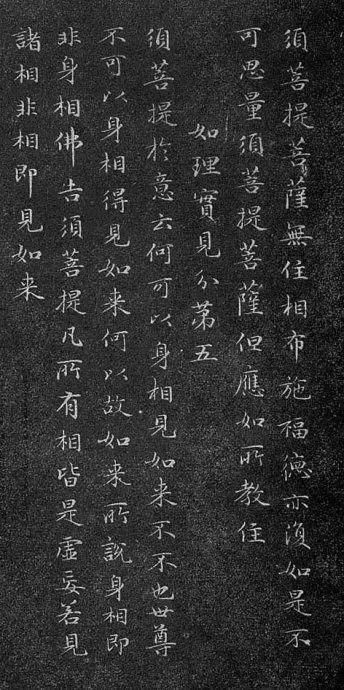 須菩提菩薩無住相布施福德亦復如是不
可思量須菩提菩薩但應如所教住
如理實見分第五
須菩提於意云何可以身相見如来不不也世尊
不可以身相得見如来何以故如来所說身相即
非身相佛告須菩提凡所有相皆是虛妄若見
諸相非相即見如来